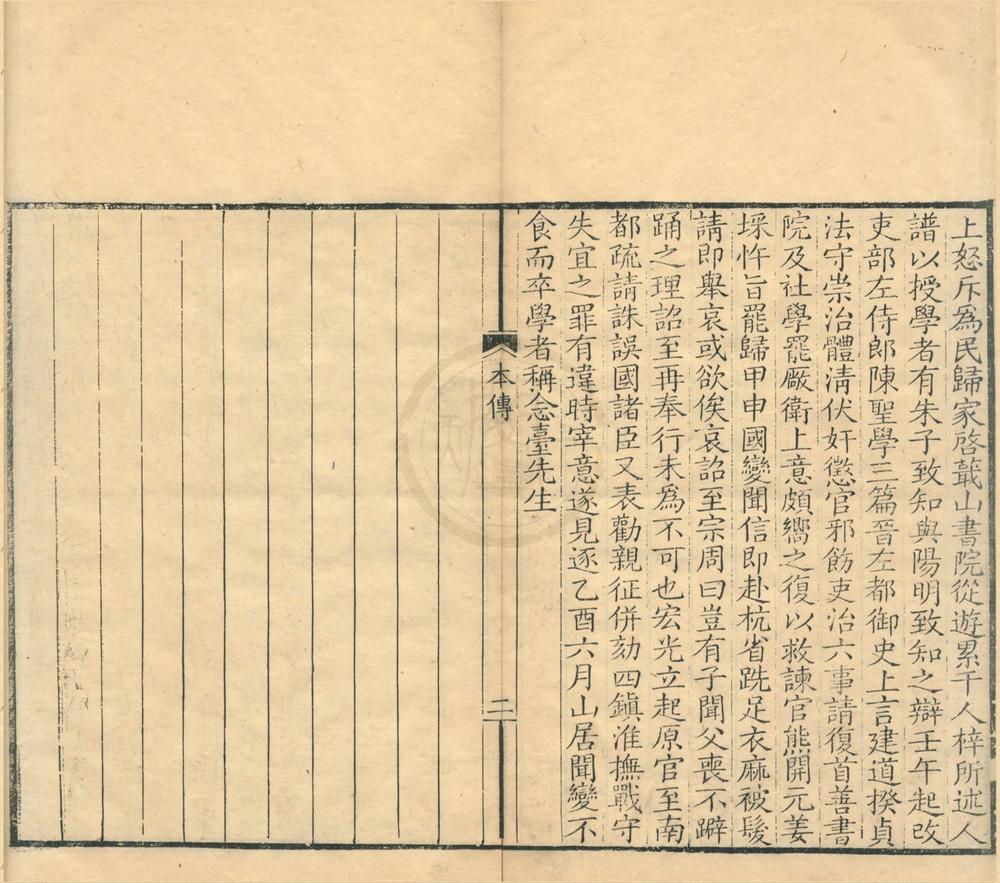 上怒斥爲民歸家啓蕺山書院從遊累千人梓所述人
譜以授學者有朱子致知與陽明致知之辯壬午起改
吏部左侍郎陳聖學三篇晉左都御史上言建道揆貞
法守崇治體清伏奸懲官邪飭吏治六事請復首善書
院及社學罷厰衛上意頗嚮之復以救諫官熊開元姜
埰忤旨罷歸甲申國變聞信即赴杭省跣足衣麻被髮
請即舉哀或欲俟哀詔至宗周曰豈有子聞父喪不躃
踊之理詔至再奉行未爲不可也宏光立起原官至南
都疏請誅誤國諸臣又表勸親征併劾四鎮淮撫戰守
失宜之罪有違時宰意遂見逐乙酉六月山居聞變不
食而卒學者稱念臺先生
本傳
二